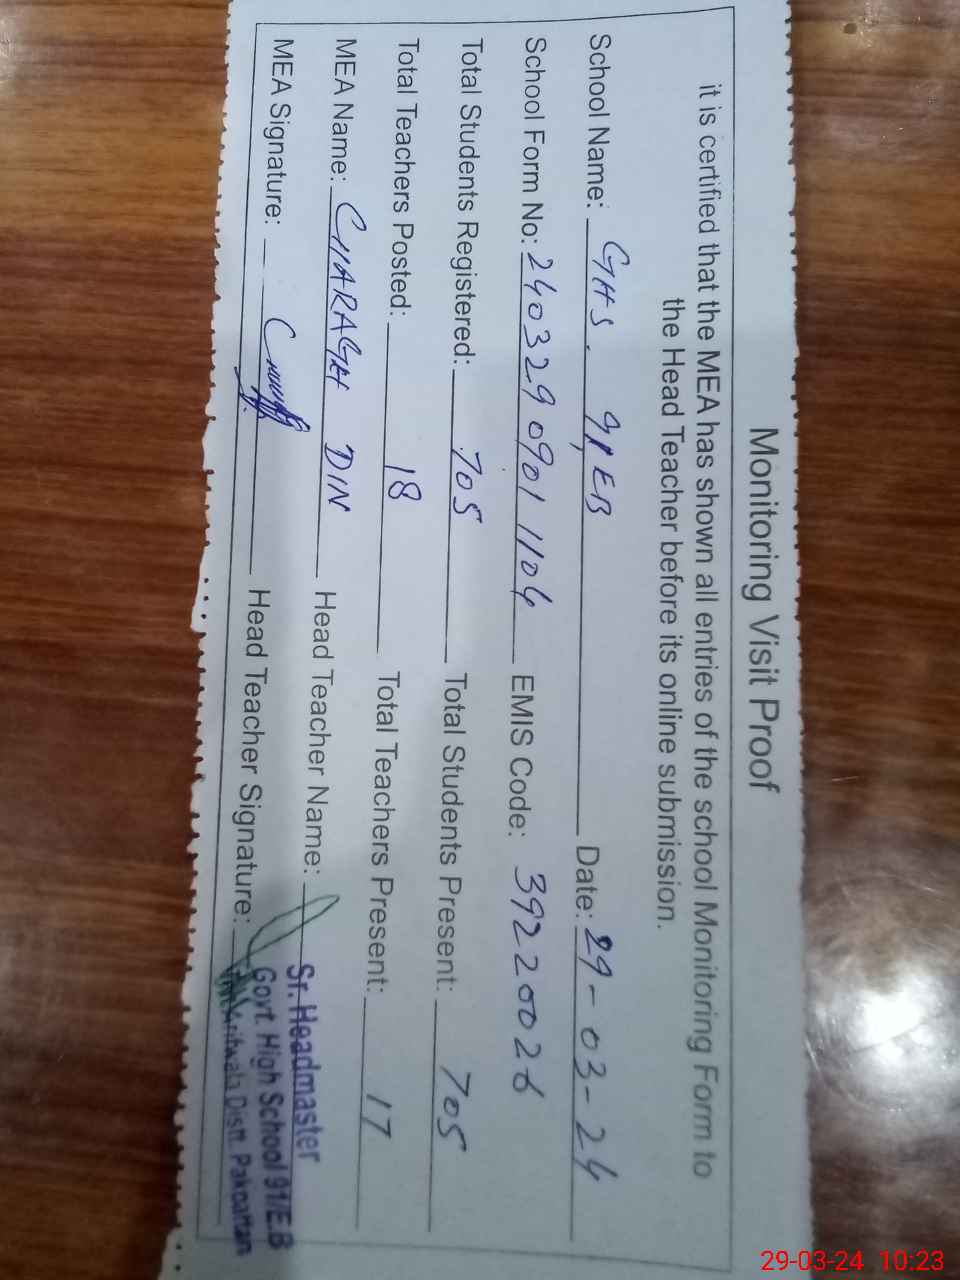 Monitoring Visit Proof
it is certified that the MEA has shown all entries of the school Monitoring Form to
the Head Teacher before its online submission.
School Name: GHS. 91 EB Date: 29-03-24
School Form No: 240329 0901 1104 EMIS Code: 39220026
Total Students Registered: 705 Total Students Present: 705
Total Teachers Posted: 18 Total Teachers Present: 17
MEA Name: CHARAGH DIN Head Teacher Name:
MEA Signature: Head Teacher Signature:
Sr. Headmaster
Govt. High School 91/E.B
Distt. Pakpattan
29-03-24 10:23